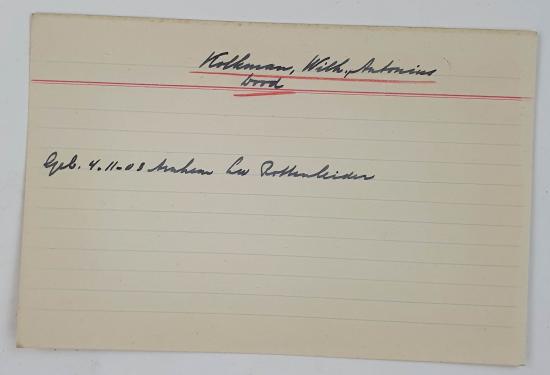 Kolkman, Wilh. Antonius
Dood
Geb. 4.11-08 Arnhem Lw Rottenleider